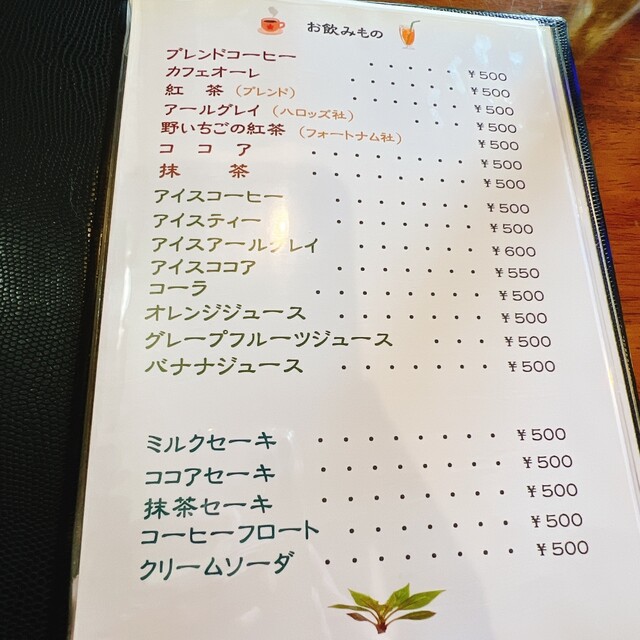 お飲みもの
ブレンドコーヒー ・・・・・ ¥500
カフェオーレ ・・・・・・ ¥500
紅 茶 (ブレンド) ・・・・・・ ¥500
アールグレイ (ハロッズ社) ・・・ ¥500
野いちごの紅茶 (フォートナム社) ¥500
コ コ ア ・・・・・・・ ¥500
抹 茶 ・・・・・・・ ¥500
アイスコーヒー ・・・・・・ ¥500
アイスティー ・・・・・・ ¥500
アイスアールグレイ ・・・・・ ¥600
アイスココア ・・・・・・ ¥550
コーラ ・・・・・・・ ¥500
オレンジジュース ・・・・・・ ¥500
グレープフルーツジュース ・・・ ¥500
バナナジュース ・・・・・・ ¥500
ミルクセーキ ・・・・・・・・ ¥500
ココアセーキ ・・・・・・・・ ¥500
抹茶セーキ ・・・・・・・・ ¥500
コーヒーフロート ・・・・・・・ ¥500
クリームソーダ ・・・・・・・ ¥500